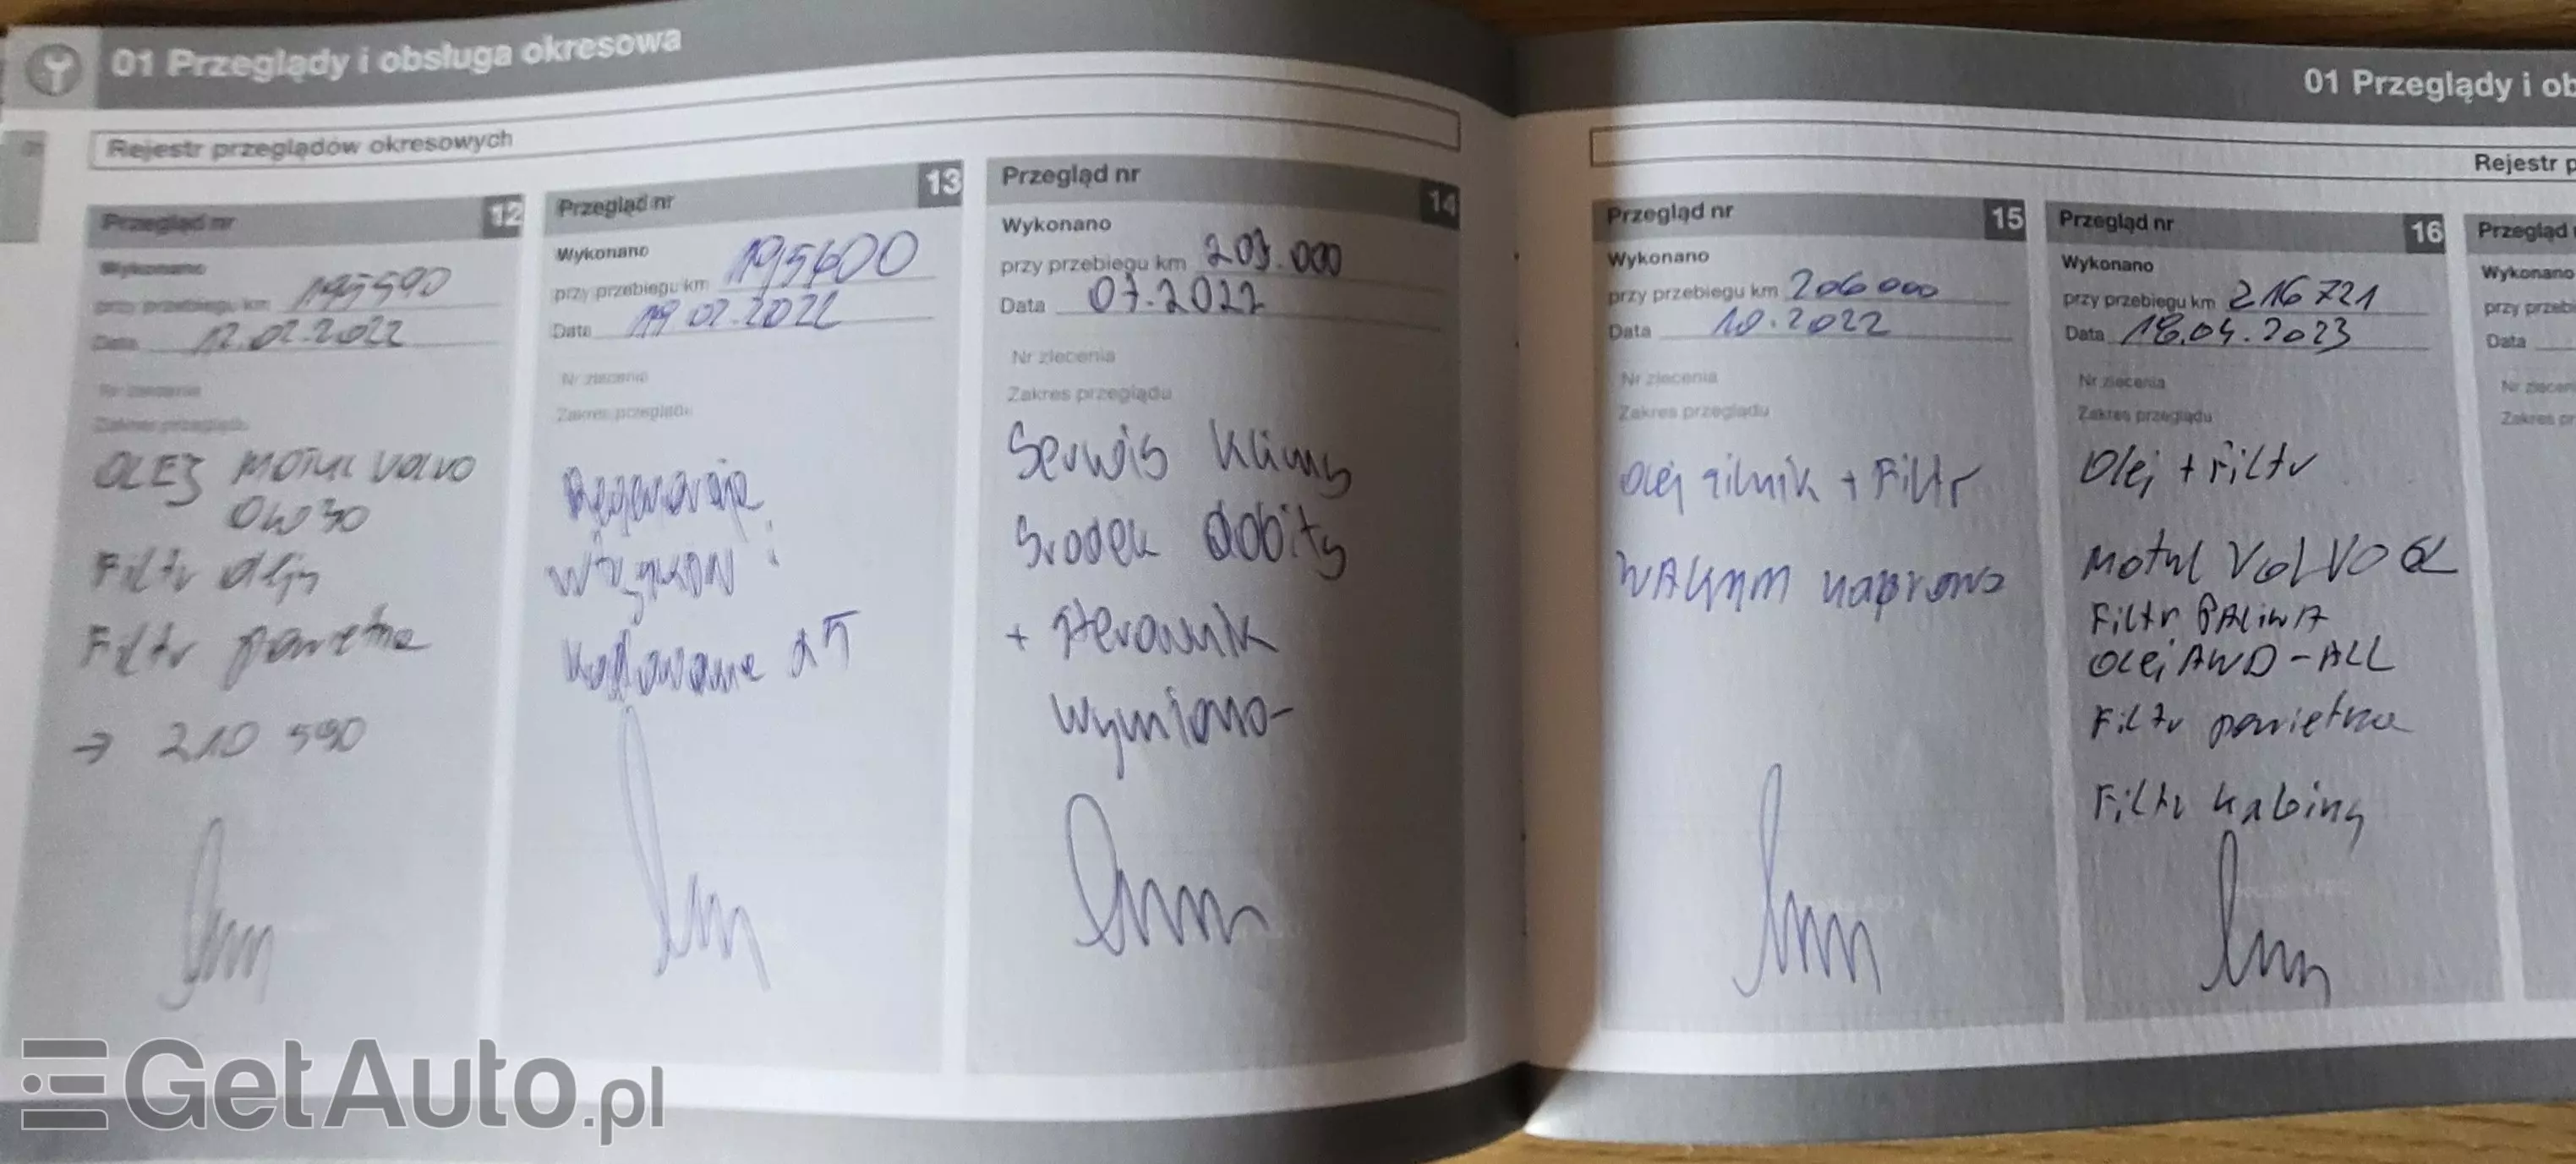 01 Przeglądy i obsługa okresowa
Rejestr przeglądów okresowych
Przegląd nr 12
Wykonano
przy przebiegu km 195590
Data 12.02.2022
Nr zlecenia
Zakres przeglądu
OLEJ MOTUL VOLVO
0W30
Filtr oleju
Filtr powietrza
→ 210 590
Przegląd nr 13
Wykonano
przy przebiegu km 195600
Data 19.02.2022
Nr zlecenia
Zakres przeglądu
Regeneracja
i
Kodowanie
Przegląd nr 14
Wykonano
przy przebiegu km 000
Data 07.2022
Nr zlecenia
Zakres przeglądu
Serwis Klimy
Środek dobity
+ sterownik
wymiana
01 Przeglądy i ob
Rejestr p
Przegląd nr 15
Wykonano
przy przebiegu km 206000
Data 10.2022
Nr zlecenia
Zakres przeglądu
Olej silnik + Filtr
naprawa
Przegląd nr 16
Wykonano
przy przebiegu km 216721
Data 18.04.2023
Nr zlecenia
Zakres przeglądu
Olej + Filtr
Motul VOLVO 6L
Filtr PALIWA
OLEJ AWD - ALL
Filtr powietrza
Filtr kabiny
Przegląd
Wykonano
przy przebi
Data
Nr zlecen
Zakres pr
GetAuto.pl